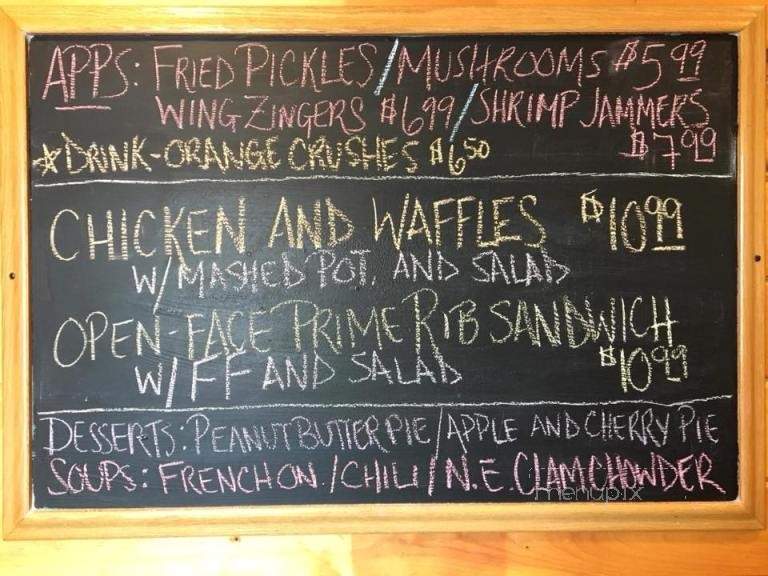 APPS: FRIED PICKLES/MUSHROOMS $5.99
WING ZINGERS $6.99/SHRIMP JAMMERS
$7.99
☆DRINK-ORANGE CRUSHES $6.50
CHICKEN AND WAFFLES $10.99
W/MASHED POT. AND SALAD
OPEN-FACE PRIME RIB SANDWICH
W/FF AND SALAD $10.99
DESSERTS: PEANUT BUTTER PIE/APPLE AND CHERRY PIE
SOUPS: FRENCH ON./CHILI/N.E. CLAM CHOWDER
menupix